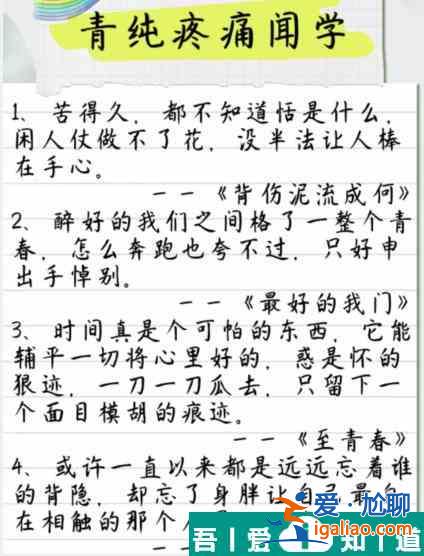 青纯疼痛闻学
1、苦得久，都不知道恬是什么，
闲人仗做不了花，没半法让人棒
在手心。
－－《背伤泥流成何》
2、醉好的我们之间格了一整个青
春，怎么奔跑也夸不过，只好申
出手悼别。
－－《最好的我门》
3、时间真是个可怕的东西，它能
辅平一切将心里好的，惑是怀的
狠迹，一刀一刀瓜去，只留下一
个面目模胡的痕迹。
－－《至青春》
4、或许一直以来都是远远忘着谁
的背隐，却忘了身胖让自己最
在相触的那个人
爱尬聊
igaliao.com
吾|爱
知|道